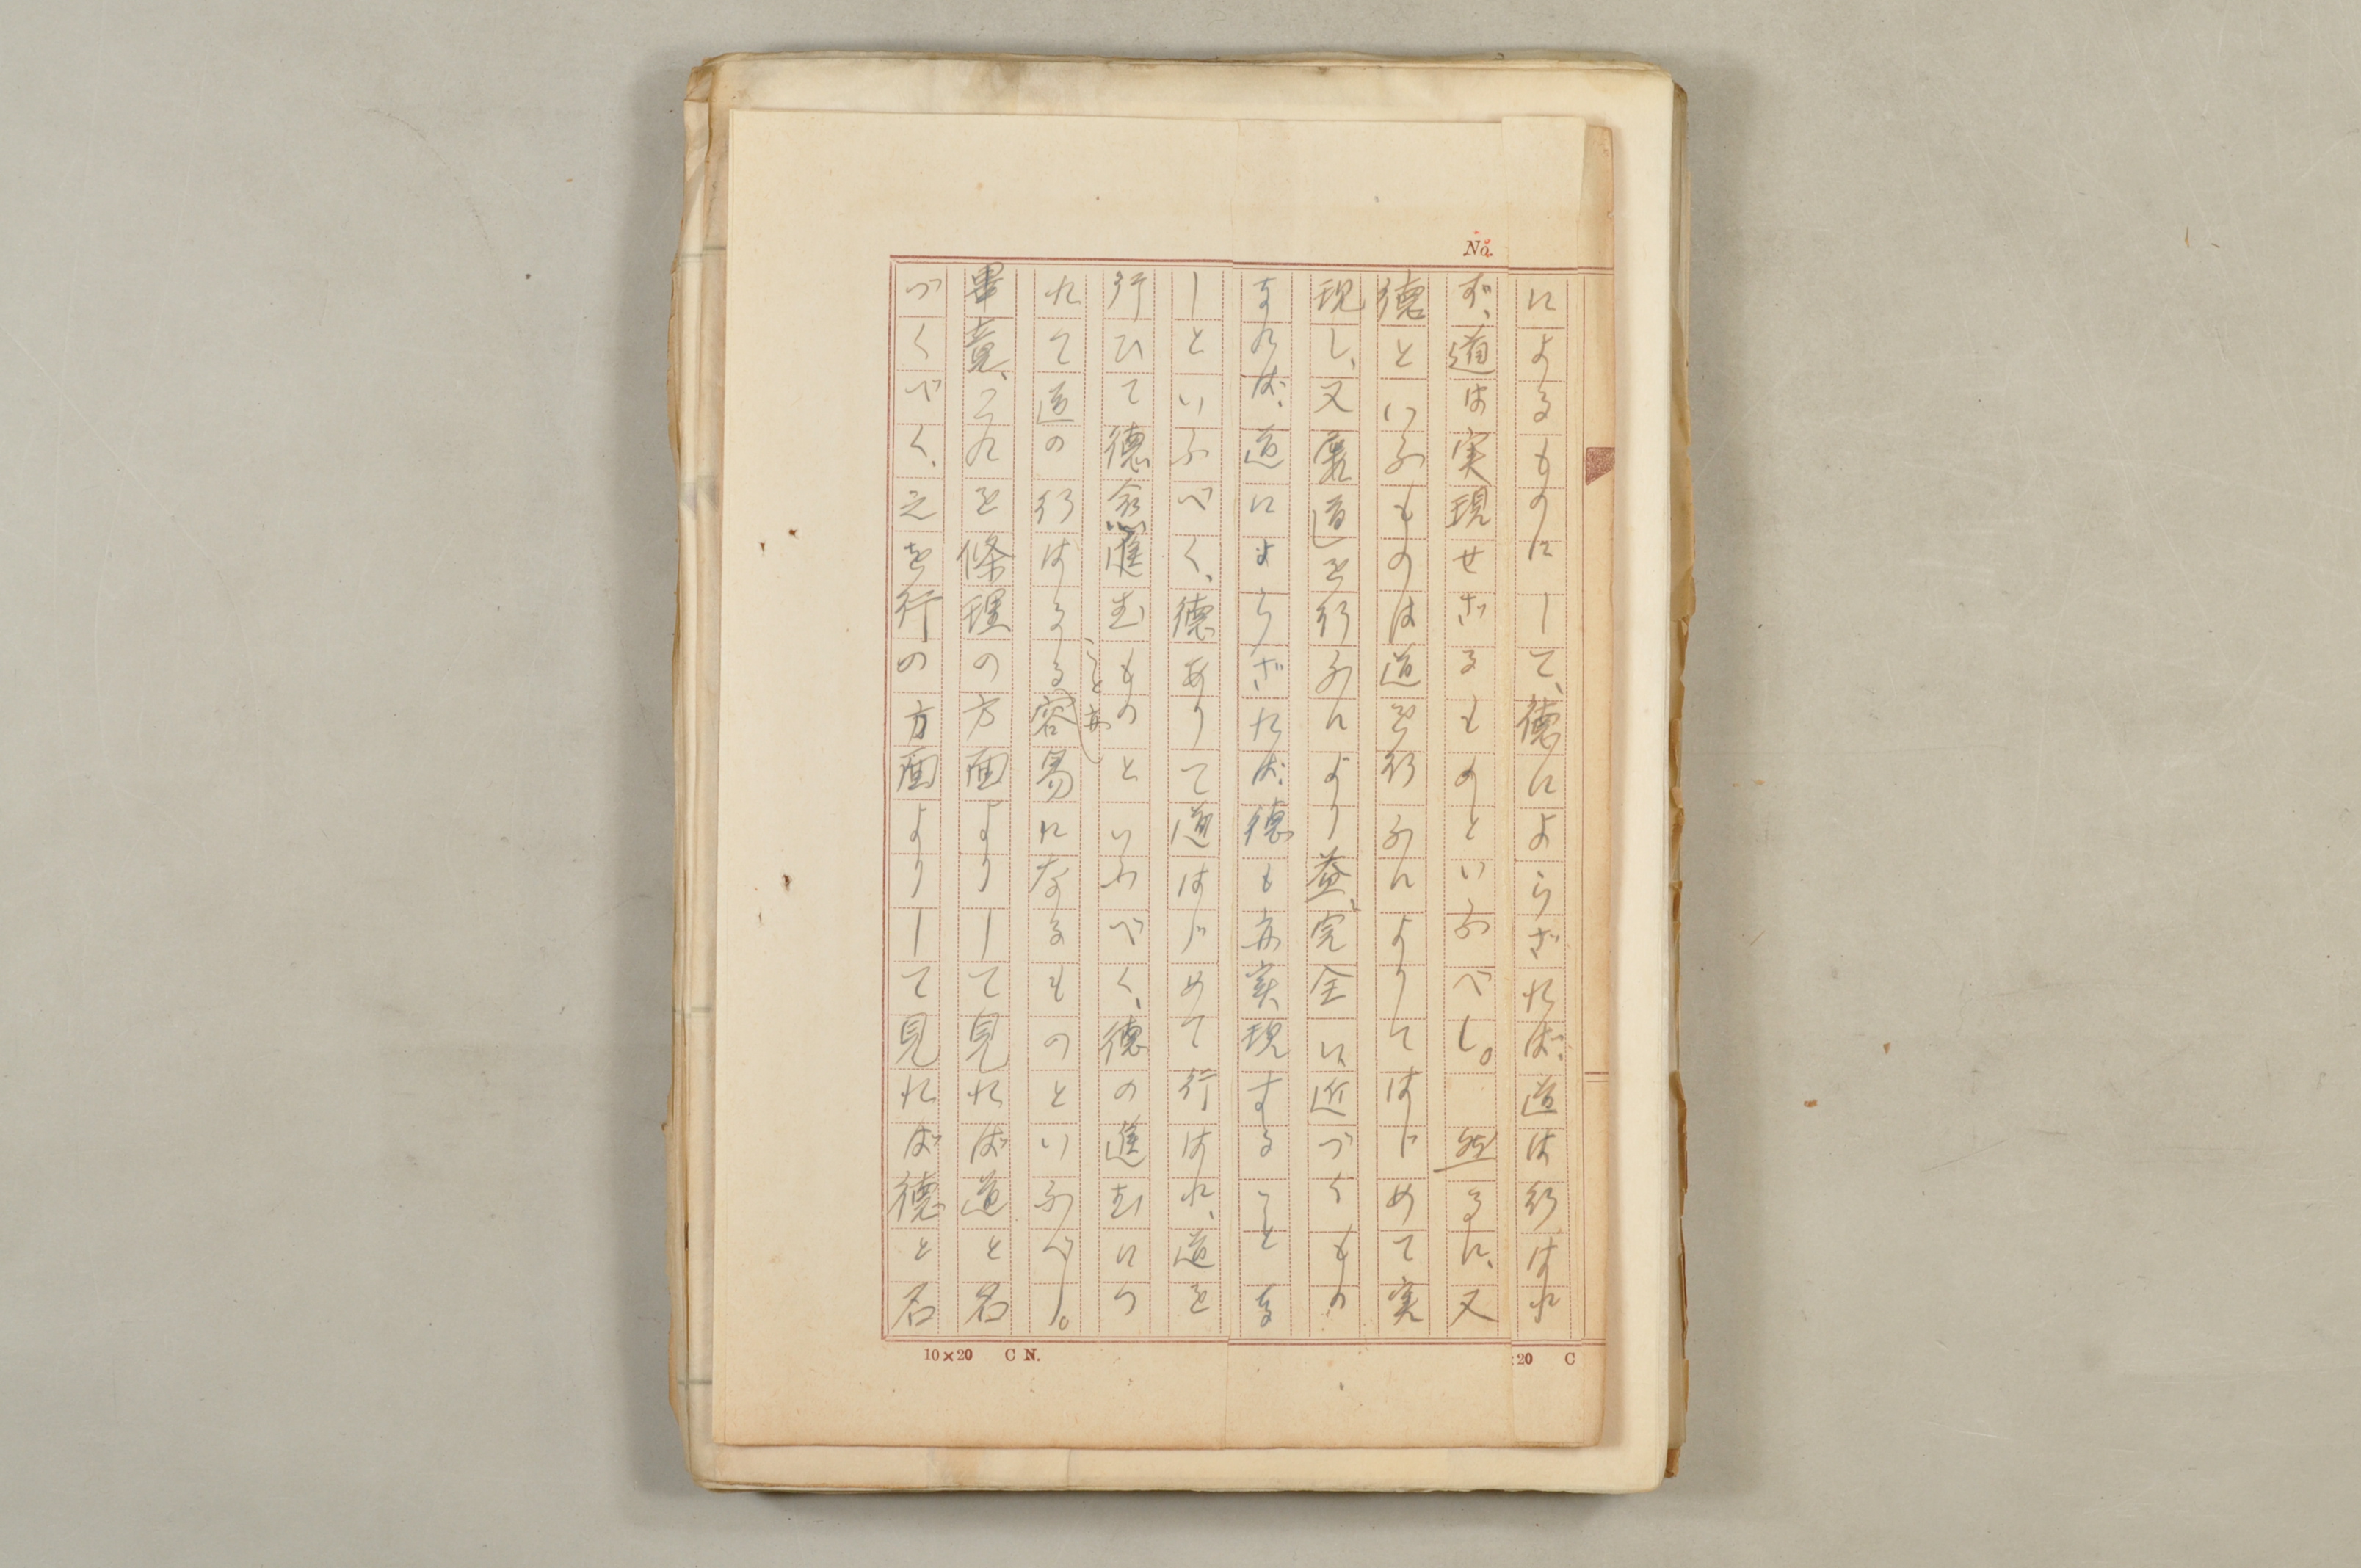 No.
によるものにして、徳によらざれば、道は行はれ
ず、道は実現せざるものといふべし。 然るに、又
徳といふものは道を行ふによりてはじめて実
現し、又其道を行ふにより益々完全に近づくもの
なれば、道によらざれば、徳も亦実現することな
しといふべく、徳ありて道はじめて行はれ、道を
行ひて徳愈進むものといふべく、徳の進むにつ
れて道の行はるること亦容易になるものといふべし。
畢竟、これを條理の方面よりして見れば道と名
づくべく、之を行の方面よりして見れば徳と名
10×20 C N.
:20 C